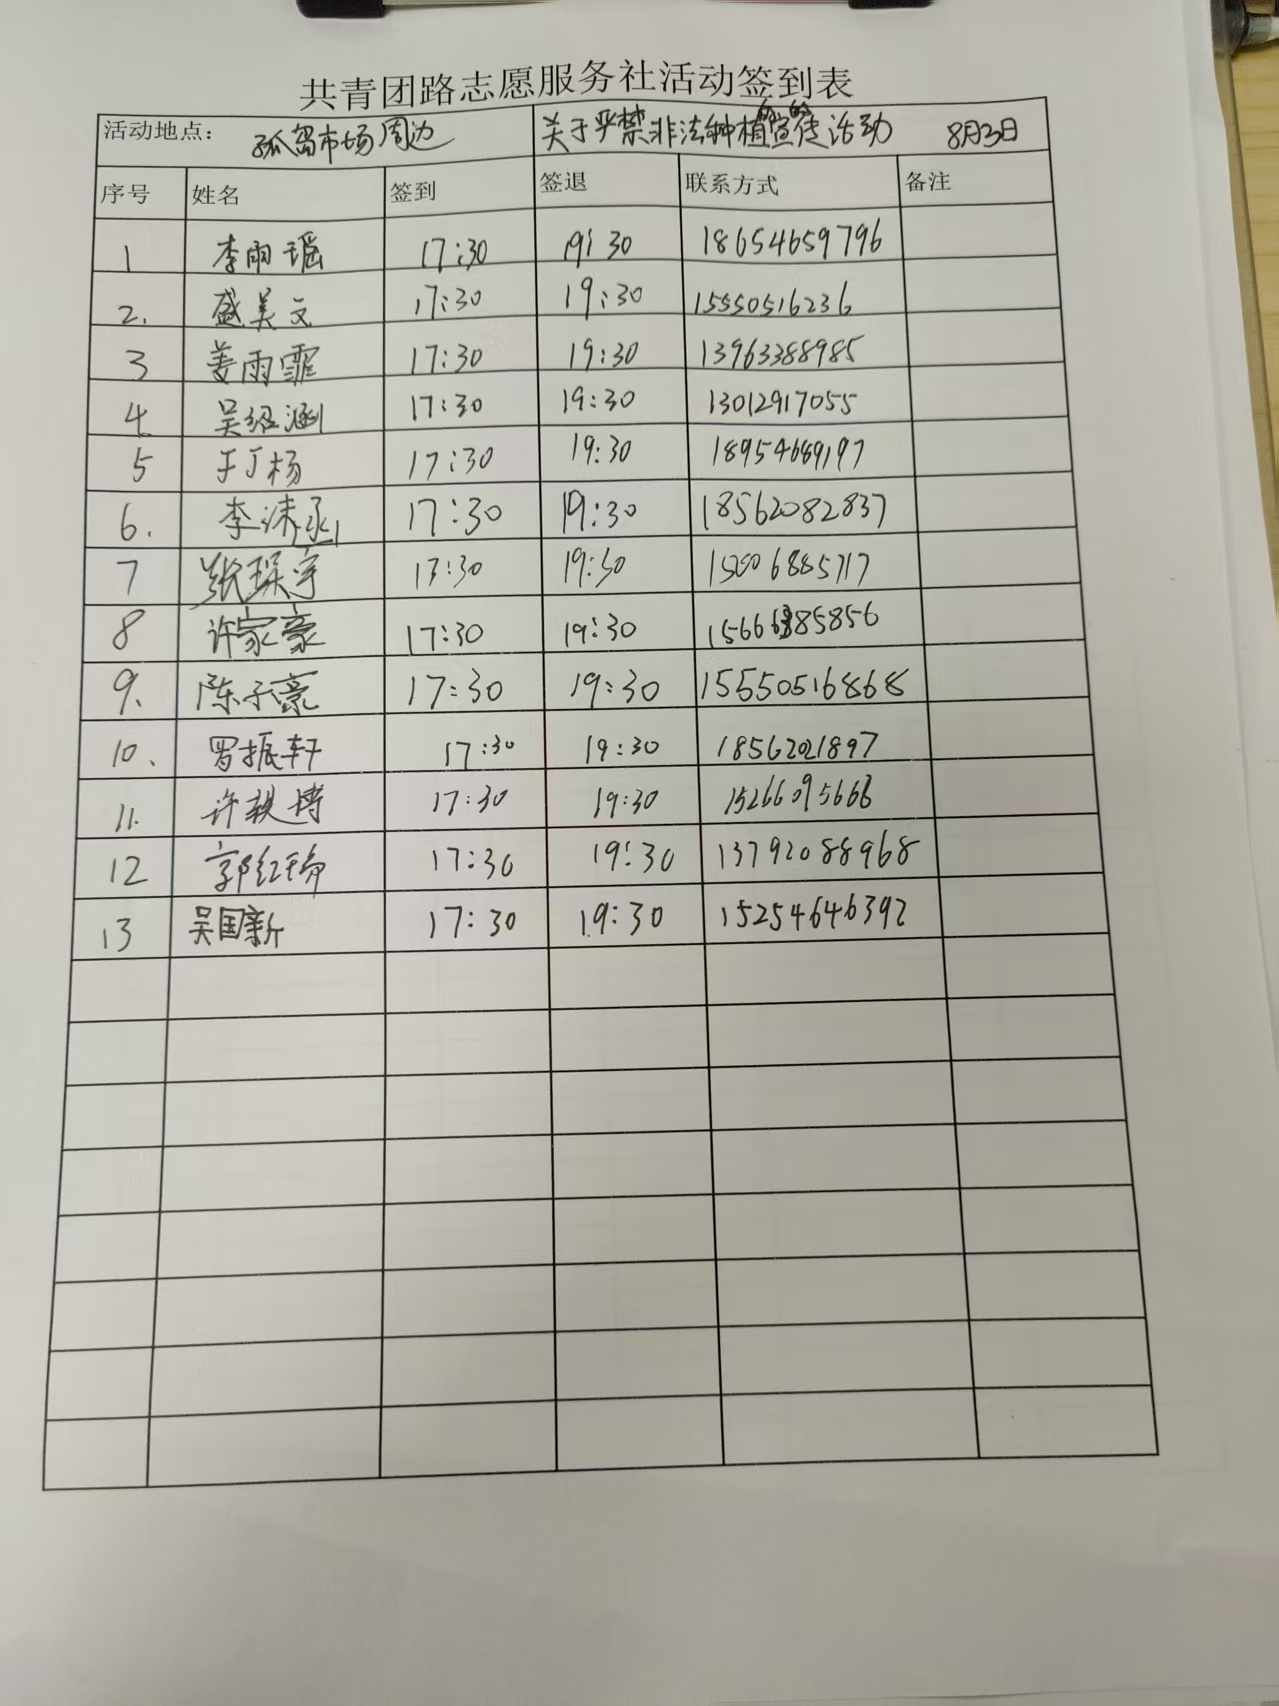 共青团路志愿服务社活动签到表
活动地点： 孤岛市场周边 关于严禁非法种植的宣传活动 8月3日
序号 姓名 签到 签退 联系方式 备注
1 李雨瑶 17:30 19:30 18654659796
2. 盛美文 17:30 19:30 15550516236
3 姜雨霏 17:30 19:30 13963388985
4 吴绍涵 17:30 19:30 13012917055
5 于丁杨 17:30 19:30 18954689197
6. 李沛函 17:30 19:30 18562082837
7 张琛宇 17:30 19:30 15006885717
8 许家豪 17:30 19:30
9. 陈子豪 17:30 19:30 15550516868
10. 罗振轩 17:30 19:30 18562021897
11. 许轶博 17:30 19:30 15266095668
12 郭红瑜 17:30 19:30 13792088968
13 吴国新 17:30 19:30 15254646392